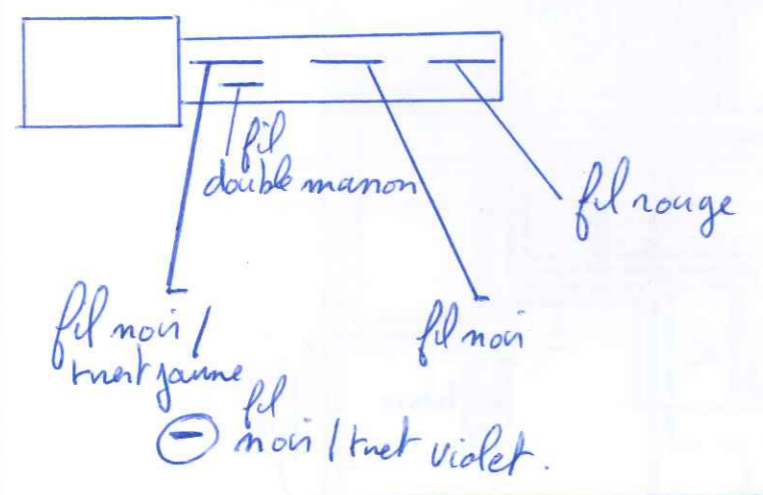 fil
double marron
fil rouge
fil noir /
trait jaune
fil noir
fil
⊖ noir / trait violet.